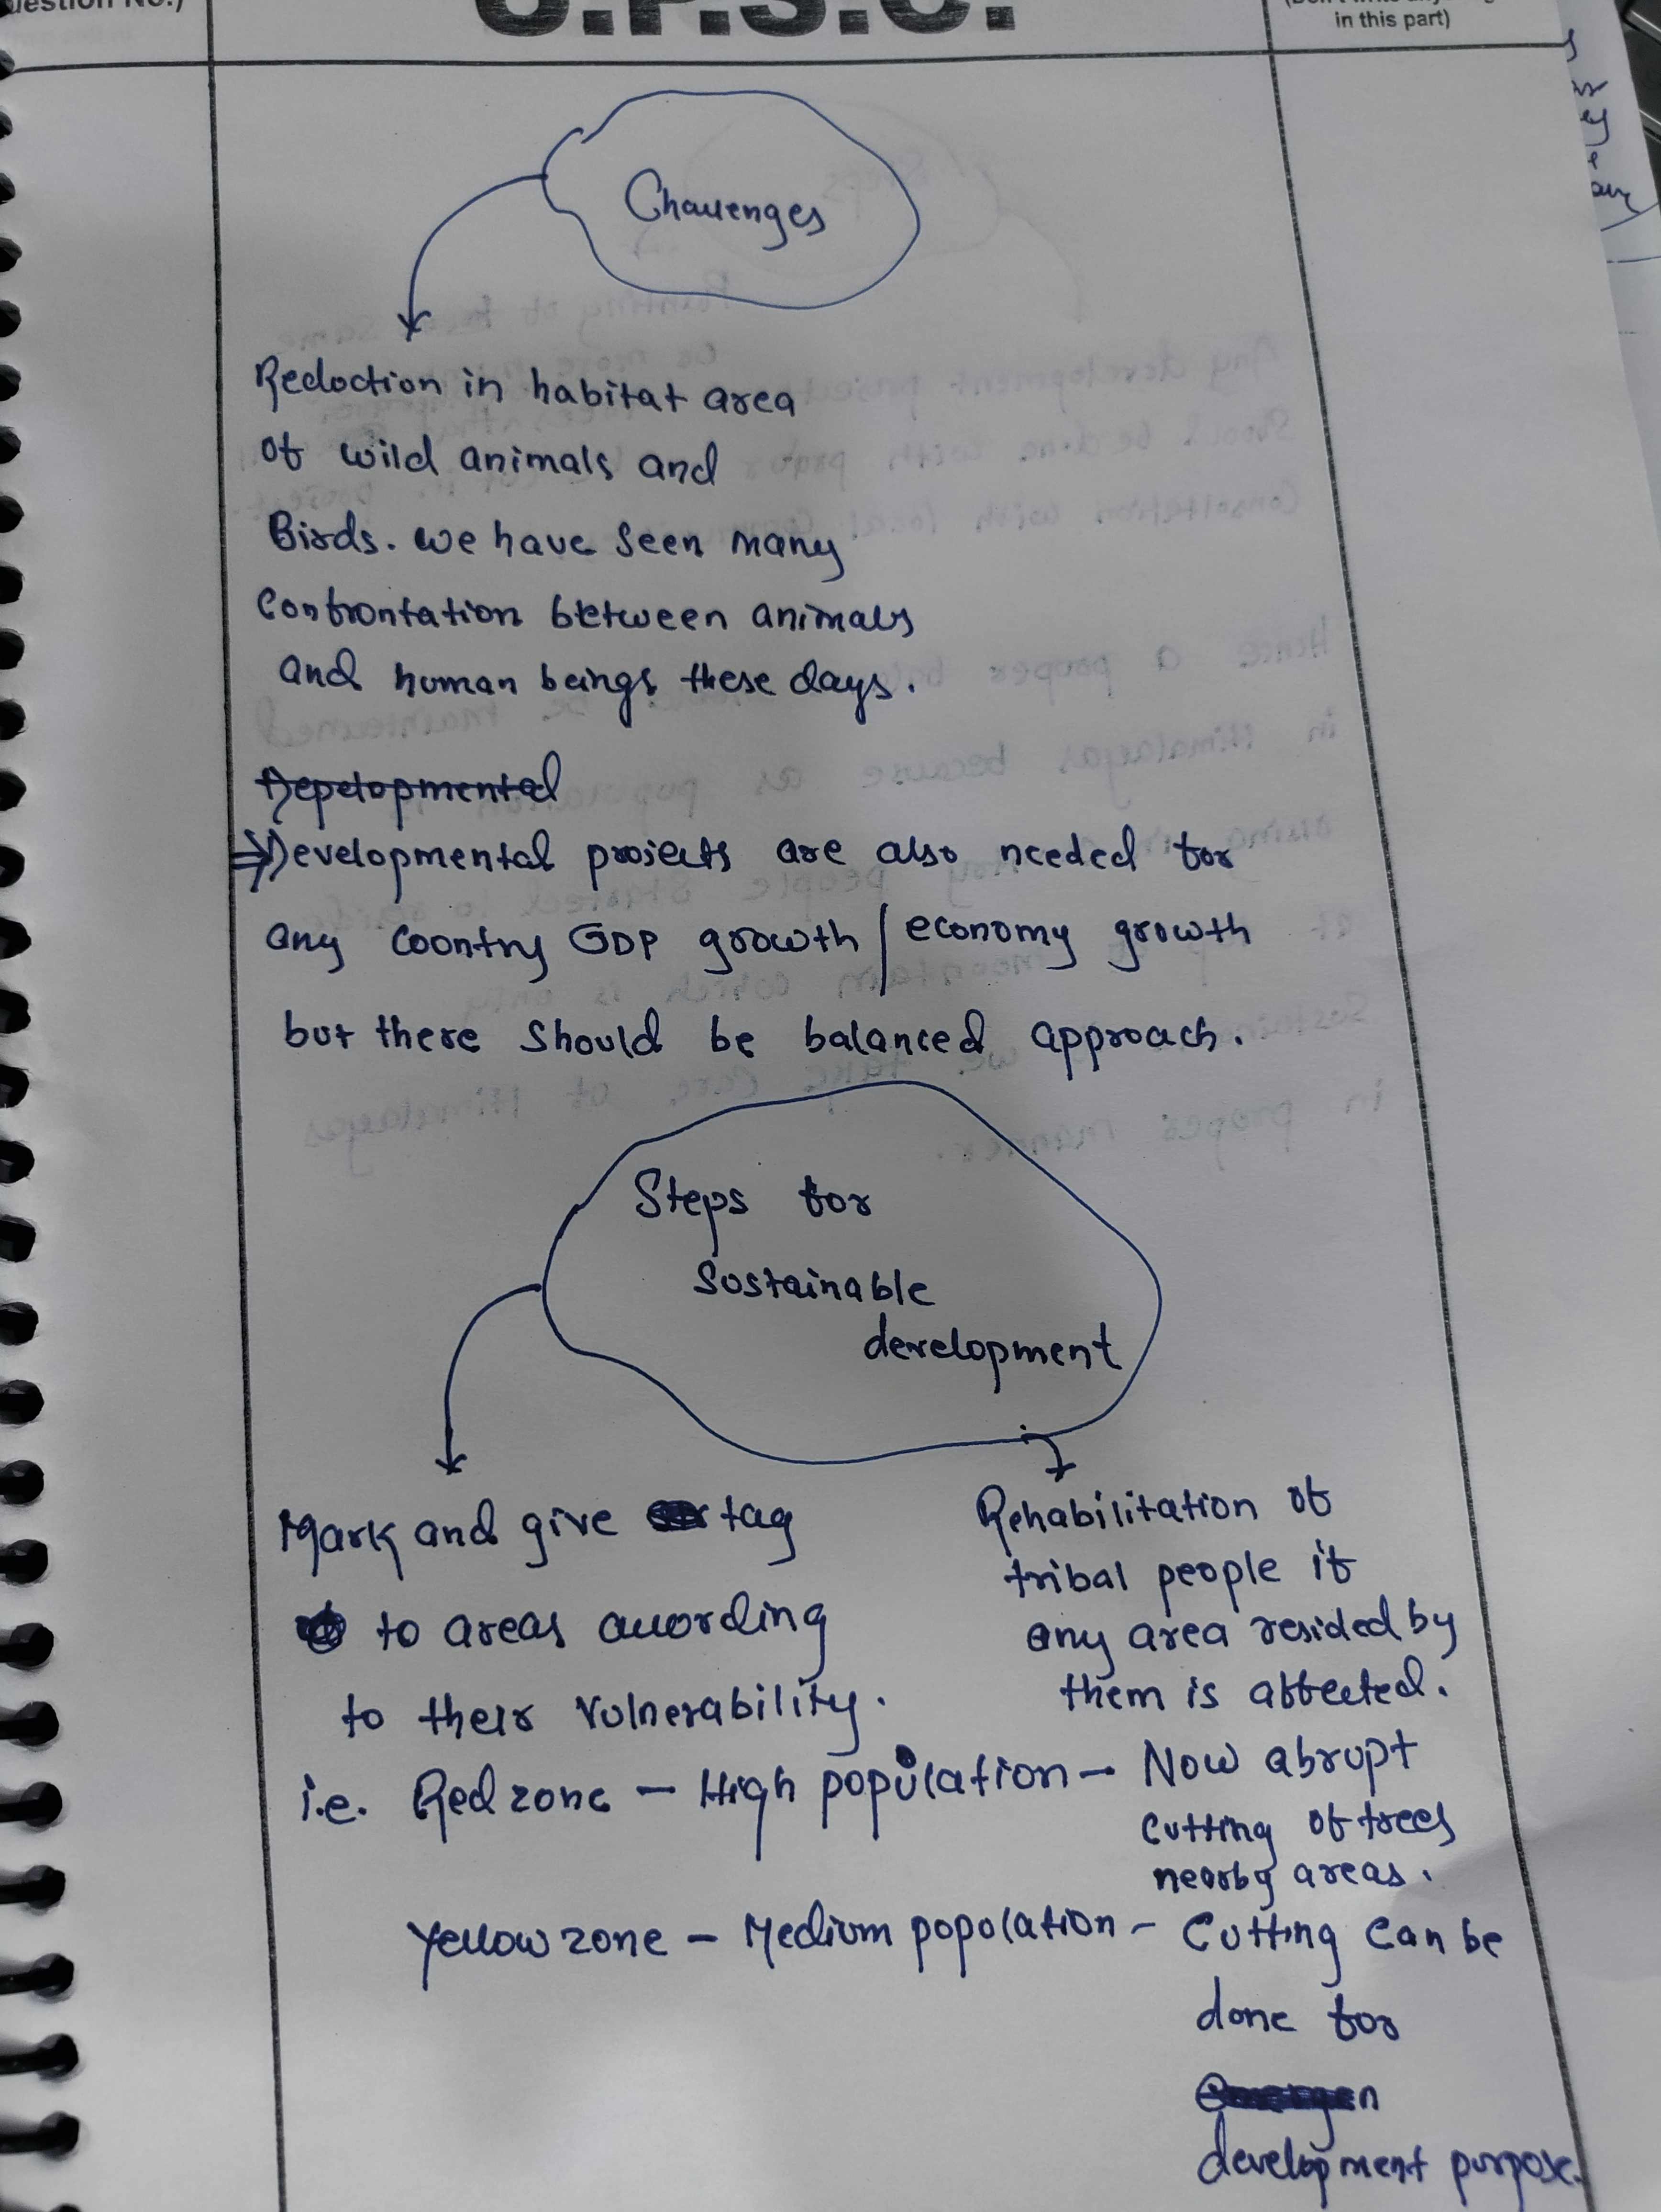 U.P.S.C.
in this part)
Challenges
Reduction in habitat area
of wild animals and
Birds. we have seen many
confrontation between animals
and human beings these days.
⇒ Developmental projects are also needed for
any country GDP growth / economy growth
but there should be balanced approach.
Steps for
sustainable
development
Mark and give tag
to areas according
to their vulnerability.
Rehabilitation of
tribal people if
any area resided by
them is affected.
i.e. Red zone – High population – Now abrupt
cutting of trees
nearby areas.
Yellow zone – Medium population – Cutting can be
done for
development purpose.